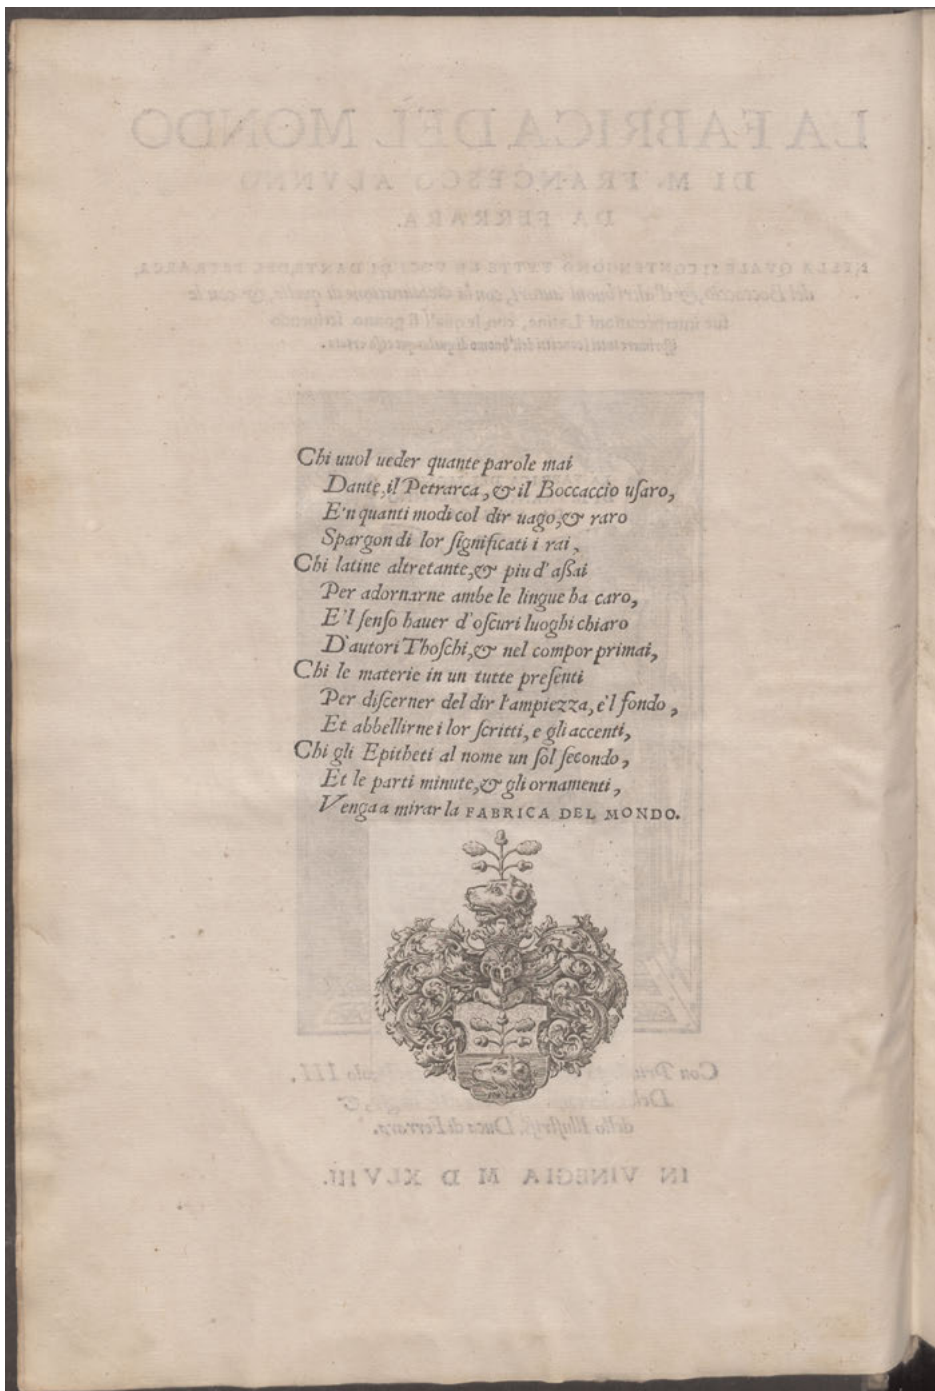 Chi uuol ueder quante parole mai
Dante, il Petrarca, & il Boccaccio uſaro,
E'n quanti modi col dir uago, & raro
Spargon di lor ſignificati i rai,
Chi latine altretante, & piu d'aſſai
Per adornarne ambe le lingue ha caro,
E'l ſenſo hauer d'oſcuri luoghi chiaro
D'autori Thoſchi, & nel compor primai,
Chi le materie in un tutte preſenti
Per diſcerner del dir l'ampiezza, e'l fondo,
Et abbellirne i lor ſcritti, e gli accenti,
Chi gli Epitheti al nome un ſol ſecondo,
Et le parti minute, & gli ornamenti,
Venga a mirar la FABRICA DEL MONDO.